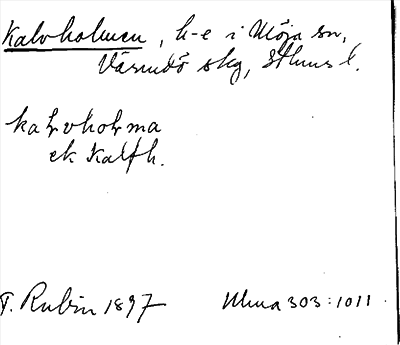 Kalvholmen, h-e i Möja sn,
Värmdö skg, Sthms l.
kaⱡvhoⱡma
ek Kalfh.
T. Rubin 1897 Uma 303:1011